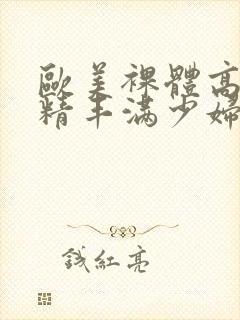 歐美裸體高
精丰滿少婦
錢紅亮